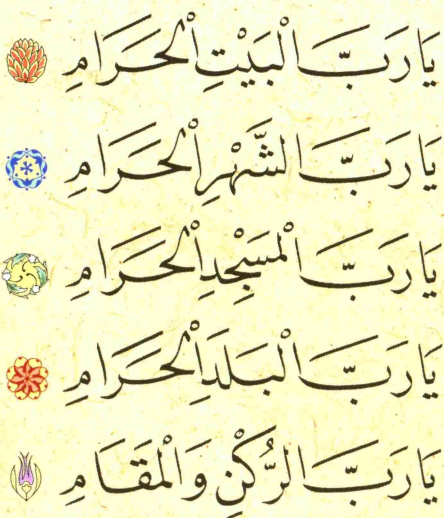 يَا رَبَّ الْبَيْتِ الْحَرَامِ
يَا رَبَّ الشَّهْرِ الْحَرَامِ
يَا رَبَّ الْمَسْجِدِ الْحَرَامِ
يَا رَبَّ الْبَلَدَِ الْحَرَامِ
يَا رَبَّ الرُّكْنِ وَالْمَقَامِ